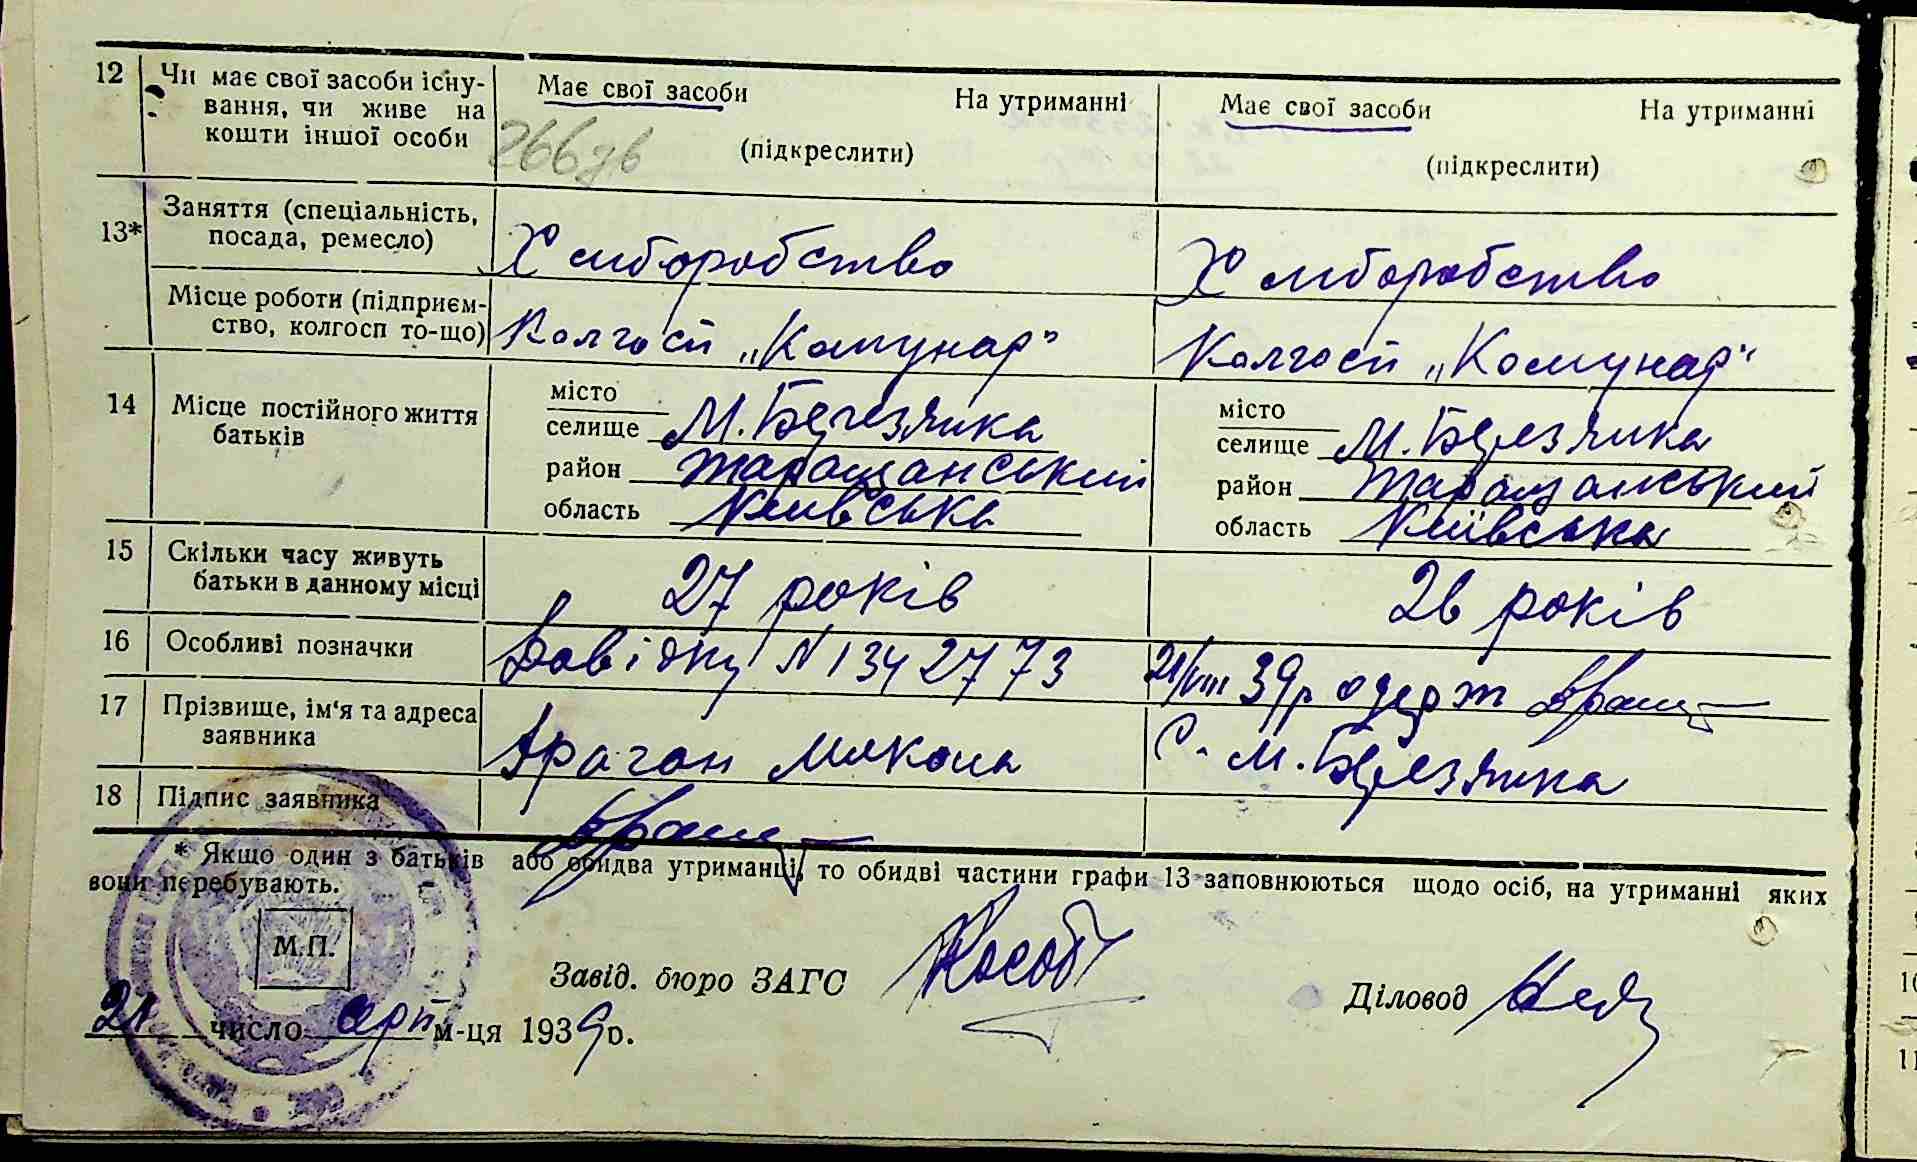 12 Чи має свої засоби існу-
вання, чи живе на
кошти іншої особи
Має свої засоби На утриманні
(підкреслити)
Має свої засоби На утриманні
(підкреслити)
13* Заняття (спеціальність,
посада, ремесло)
Хліборобство
Хліборобство
Місце роботи (підприєм-
ство, колгосп то-що)
Колгосп „Комунар"
Колгосп „Комунар"
14 Місце постійного життя
батьків
місто
селище М. Березянка
район Таращанський
область Київська
місто
селище М. Березянка
район Таращанський
область Київська
15 Скільки часу живуть
батьки в данному місці
27 років
26 років
16 Особливі позначки
Довідку N 1342773
21/VIII 39р одерж
17 Прізвище, ім'я та адреса
заявника
Драган Микола
С. М. Березянка
18 Підпис заявника
* Якщо один з батьків або обидва утриманці, то обидві частини графи 13 заповнюються щодо осіб, на утриманні яких
вони перебувають.
М.П.
Завід. бюро ЗАГС
Діловод
21 число серп м-ця 1939 р.